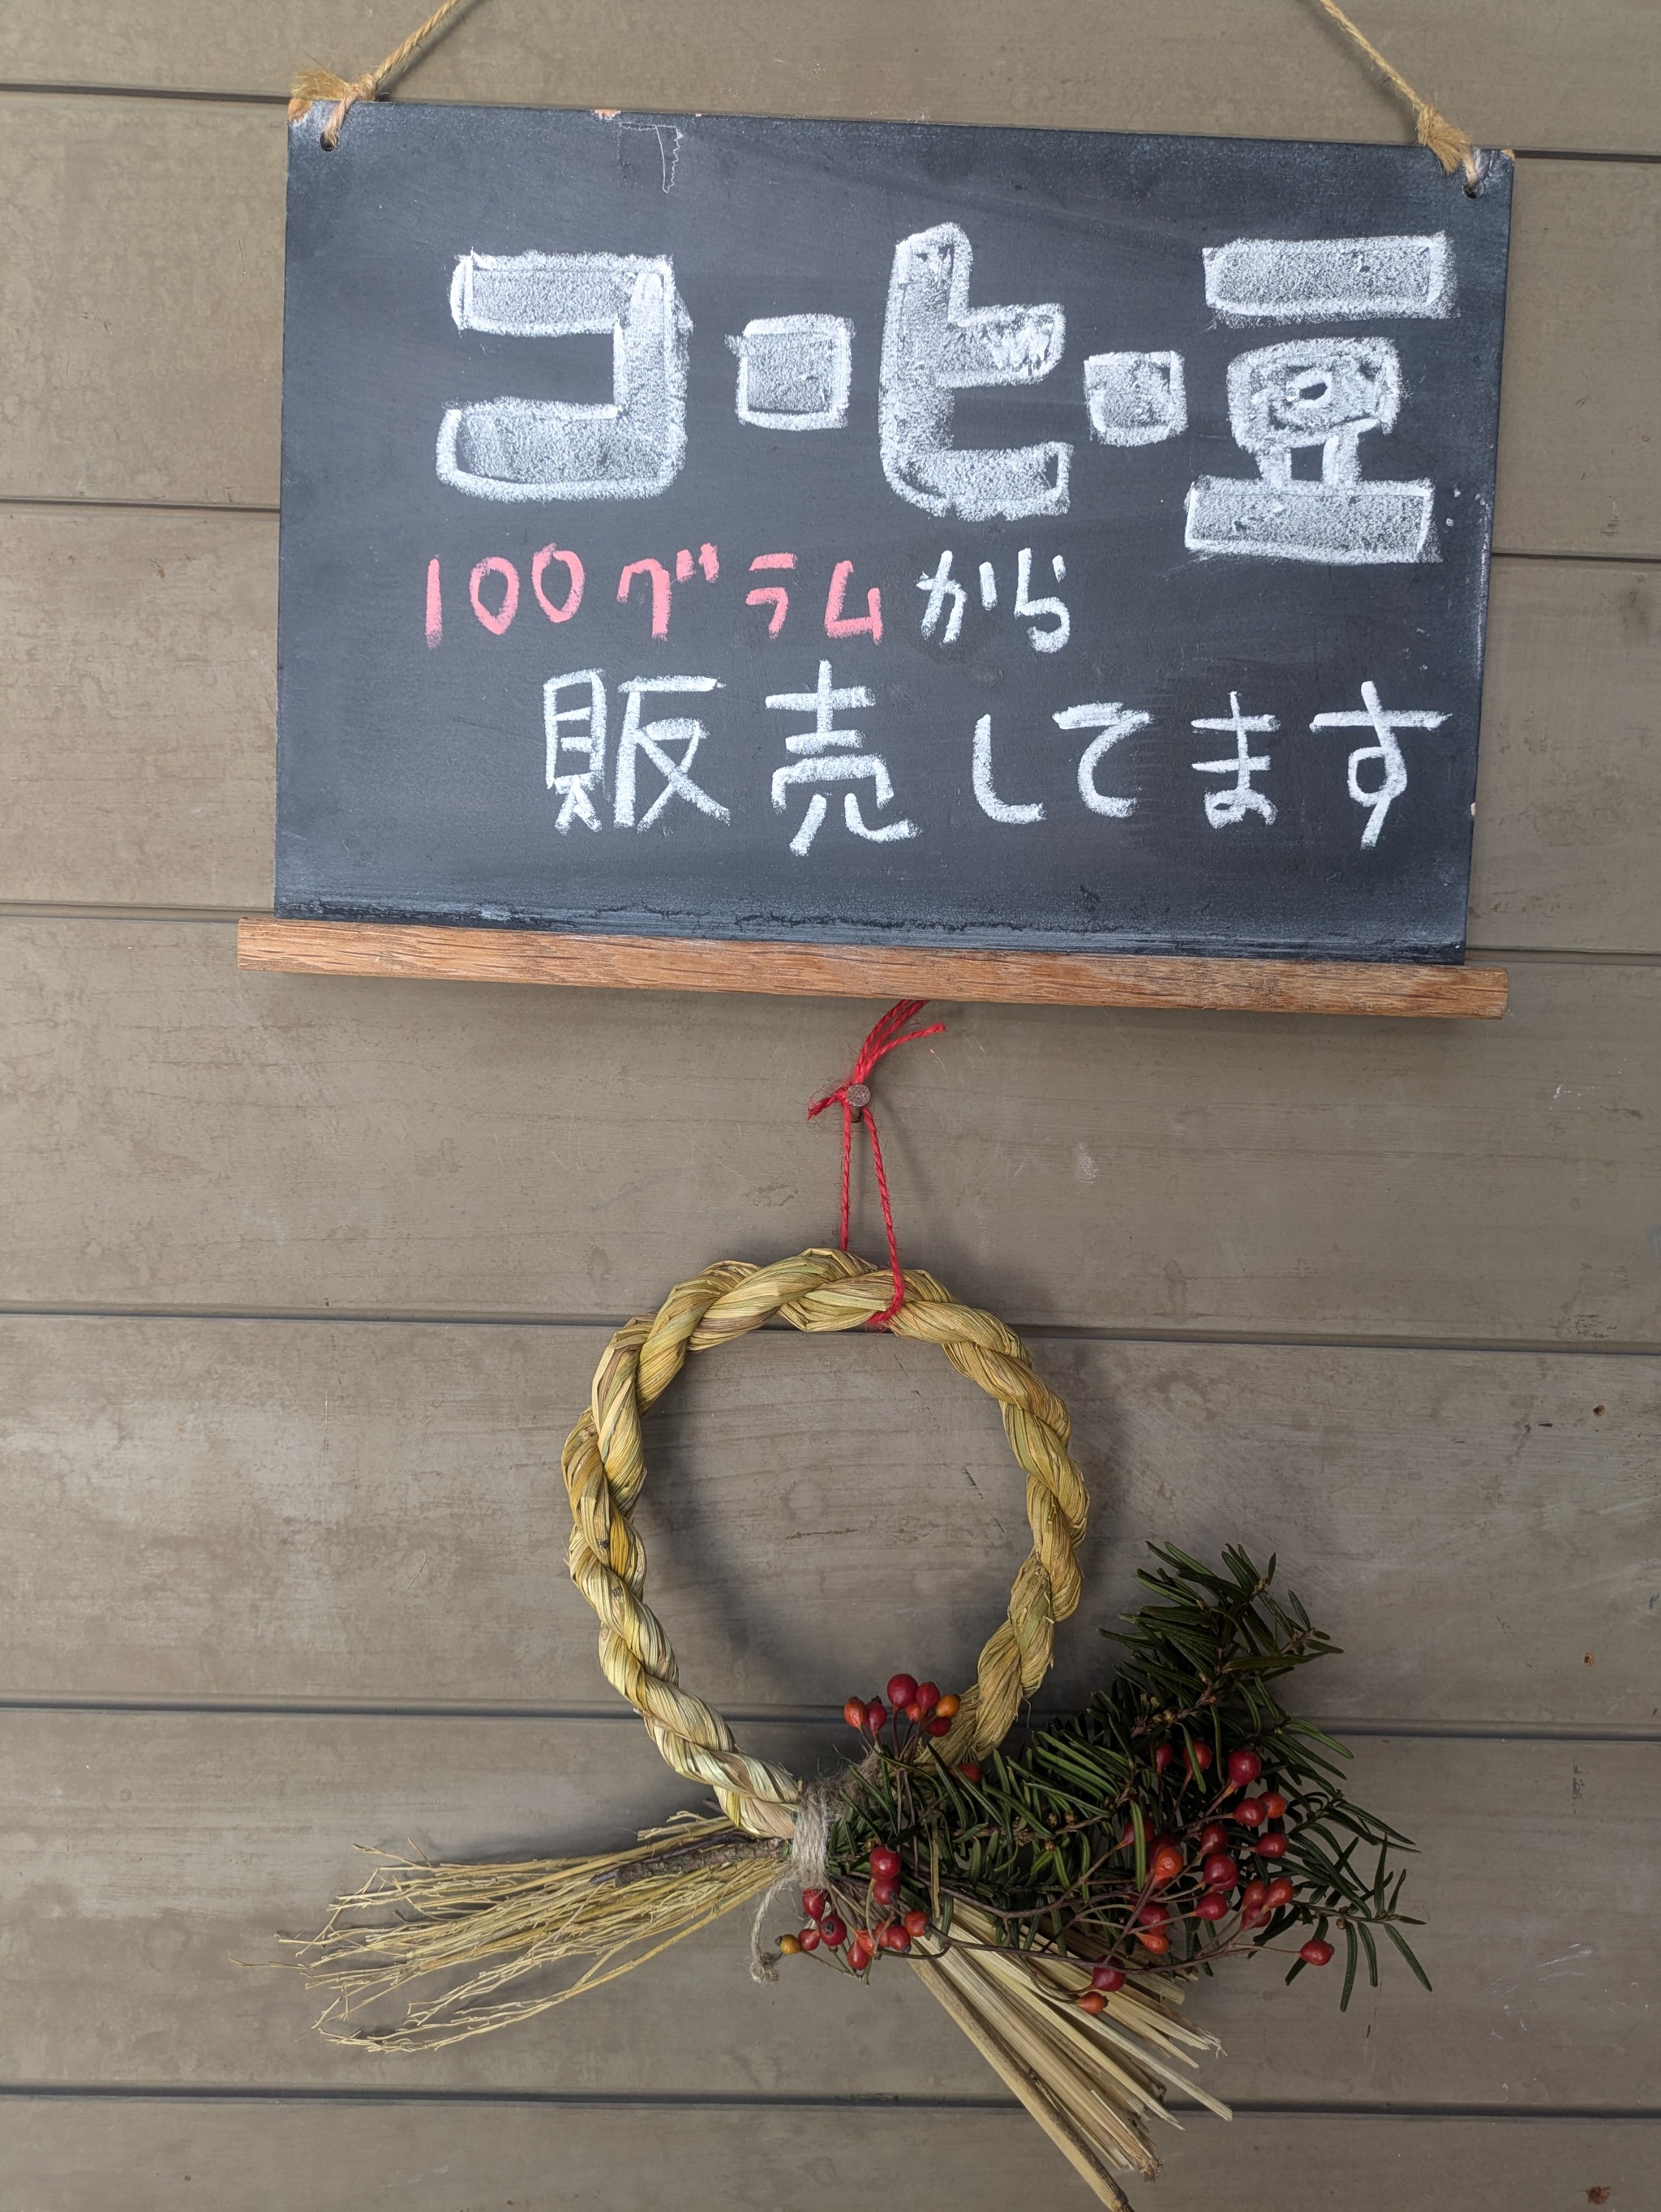 コーヒー豆
100グラムから
販売してます